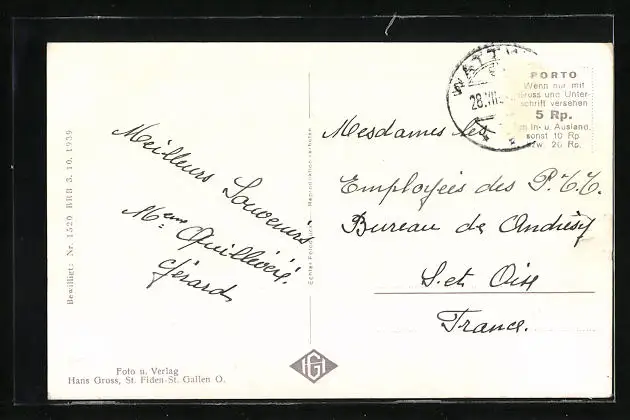 Bewilligt: Nr. 1520 BRB 3. 10. 1939
Meilleurs Souvenirs
Gérard
Foto u. Verlag
Hans Gross, St. Fiden-St. Gallen O.
Echter Fotodruck
Reproduktion verboten
HG
28.VII
PORTO
Wenn nur mit
Gruss und Unter-
schrift versehen
5 Rp.
m In- u. Ausland,
sonst 10 Rp
bzw. 20 Rp.
Mesdames les
Employées des P.T.T.
Bureau de Andrésy
S. et Oise
France.